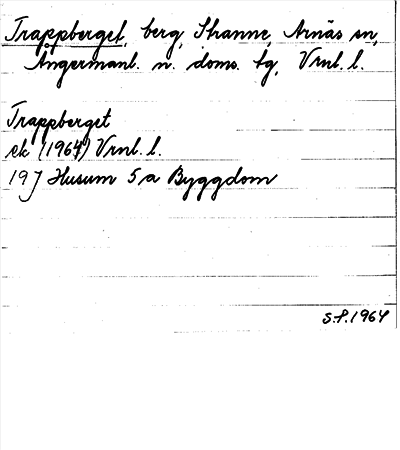 Trappberget, berg, Stranne, Arnäs sn,
Ångermanl. n. doms. tg, Vrnl. l.
Trappberget
ek (1964) Vrnl. l.
19 J Husum 5 a Byggdom
S.P. 1964